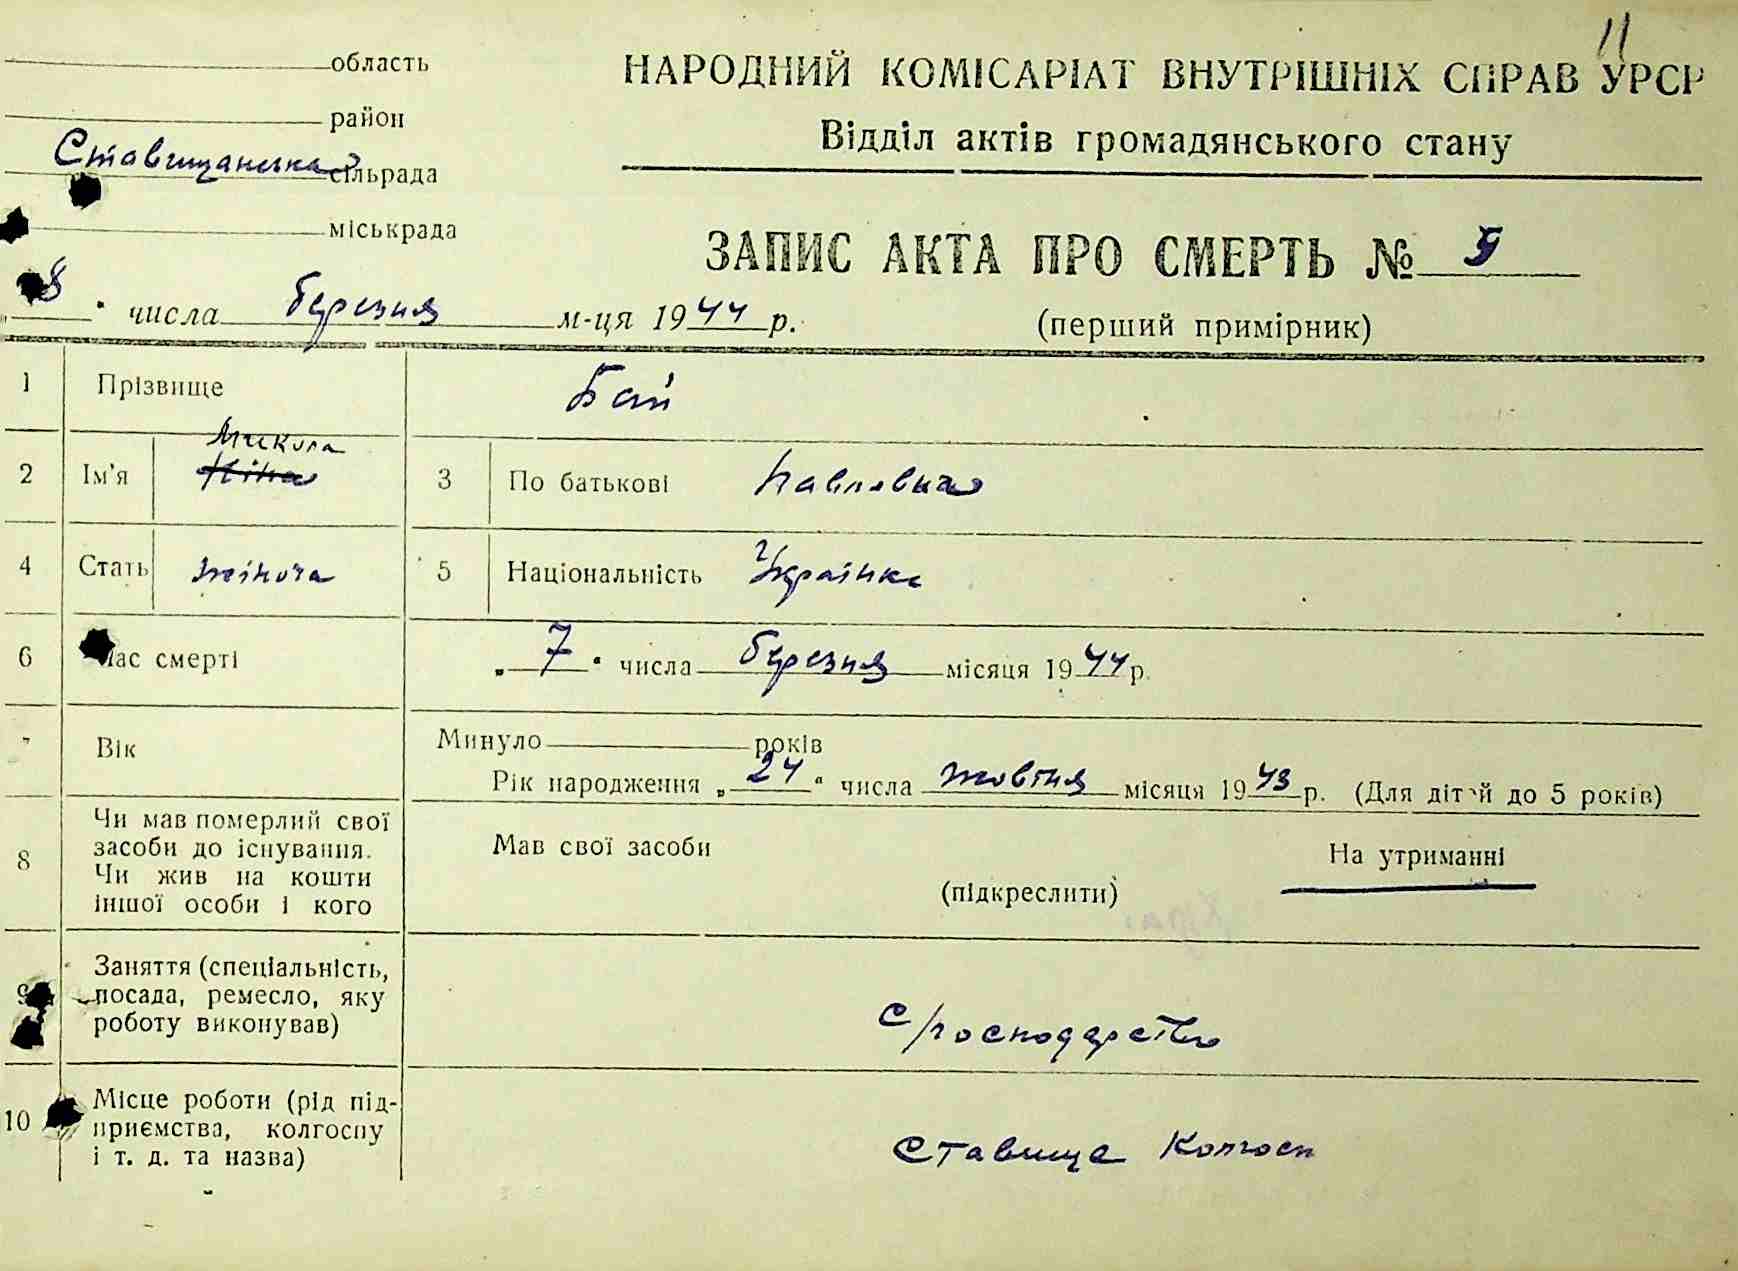 11
область
НАРОДНИЙ КОМІСАРІАТ ВНУТРІШНІХ СПРАВ УРСР
район
Відділ актів громадянського стану
Ставищанська сільрада
міськрада
ЗАПИС АКТА ПРО СМЕРТЬ № 9
„8“ числа березня м-ця 1944 р.
(перший примірник)
1 Прізвище Бай
Микола
2 Ім'я Ніна 3 По батькові Павловна
4 Стать жіноча 5 Національність Українка
6 Час смерті „7“ числа березня місяця 1944 р.
7 Вік Минуло років
Рік народження „24“ числа жовтня місяця 1943 р. (Для дітей до 5 років)
8 Чи мав померлий свої
засоби до існування.
Чи жив на кошти
іншої особи і кого
Мав свої засоби На утриманні
(підкреслити)
9 Заняття (спеціальність,
посада, ремесло, яку
роботу виконував)
с/господарство
10 Місце роботи (рід під-
приємства, колгоспу
і т. д. та назва)
Ставище Колгосп